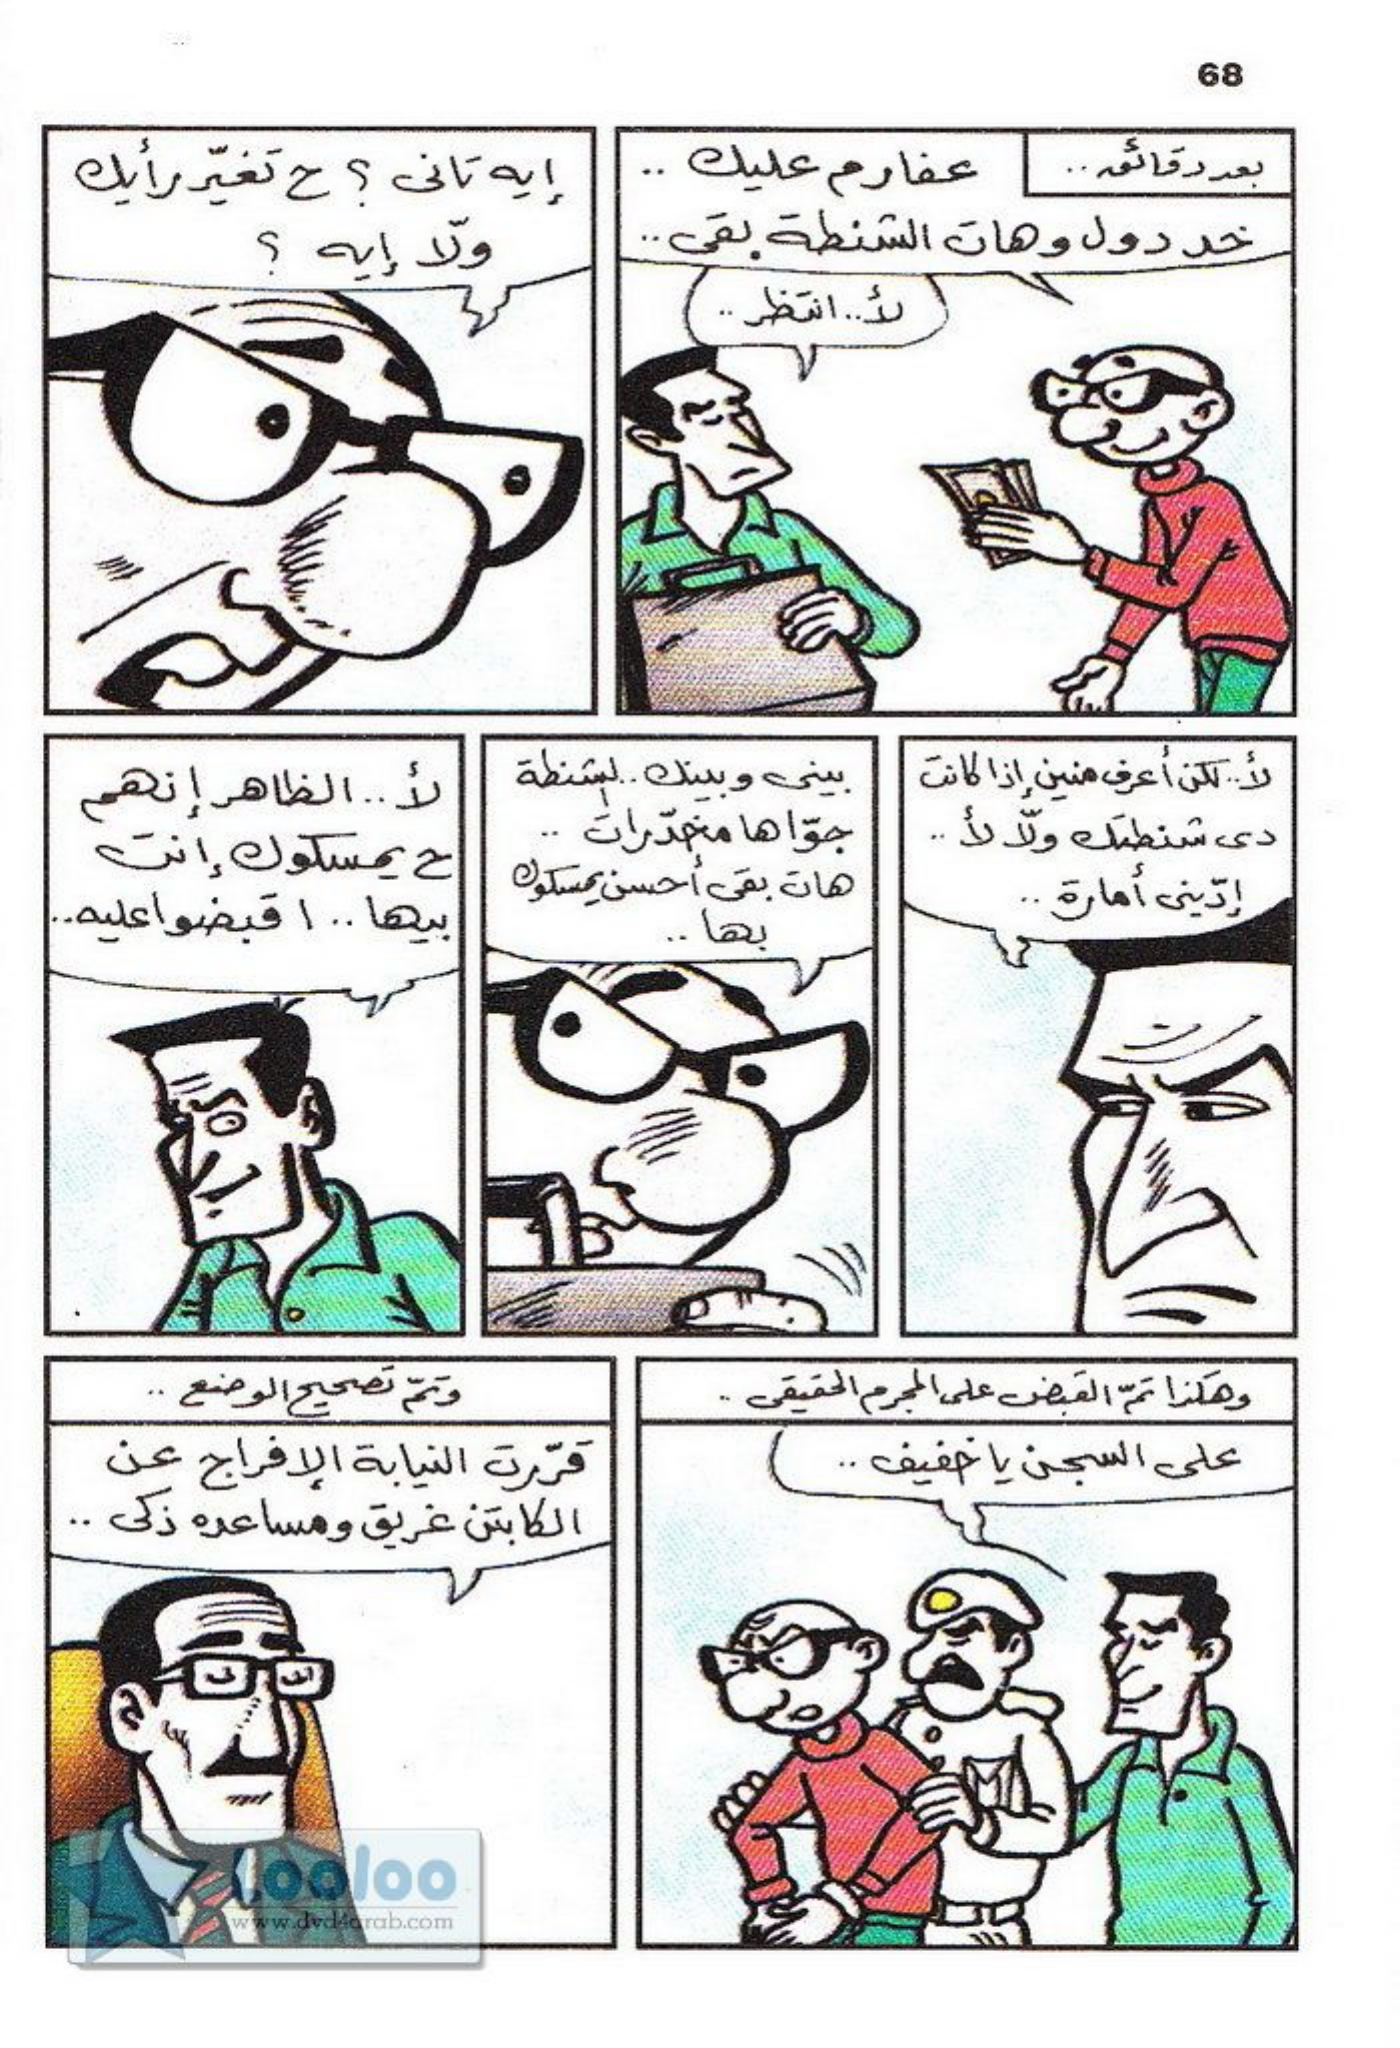 68
بعد دقائق ..
عفارم عليك ..
خد دول وهات الشنطة بقى ..
لأ .. انتظر ..
إيه تانى ؟ ح تغيّر رأيك
ولّا إيه ؟
لأ .. لكن أعرف منين إذا كانت
دى شنطتك ولّا لأ ..
إدّينى أمارة ..
بينى وبينك .. الشنطة
جوّاها مخدّرات ..
هات بقى أحسن يمسكوك
بها ..
لأ .. الظاهر إنهم
ح يمسكوك إنت
بيها .. اقبضوا عليه ..
وهكذا تمّ القبض على المجرم الحقيقى ..
على السجن يا خفيف ..
وتمّ تصحيح الوضع ..
قرّرت النيابة الإفراج عن
الكابتن غريق ومساعده زكى ..
Looloo
www.dvd4arab.com